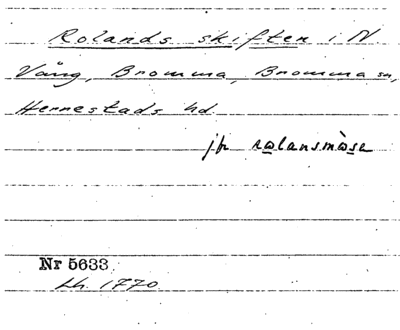 Rolands skiften i N
Vång, Bromma, Bromma sn,
Herrestads hd.
jfr rolansmòse
Nr 5633
Lh. 1770